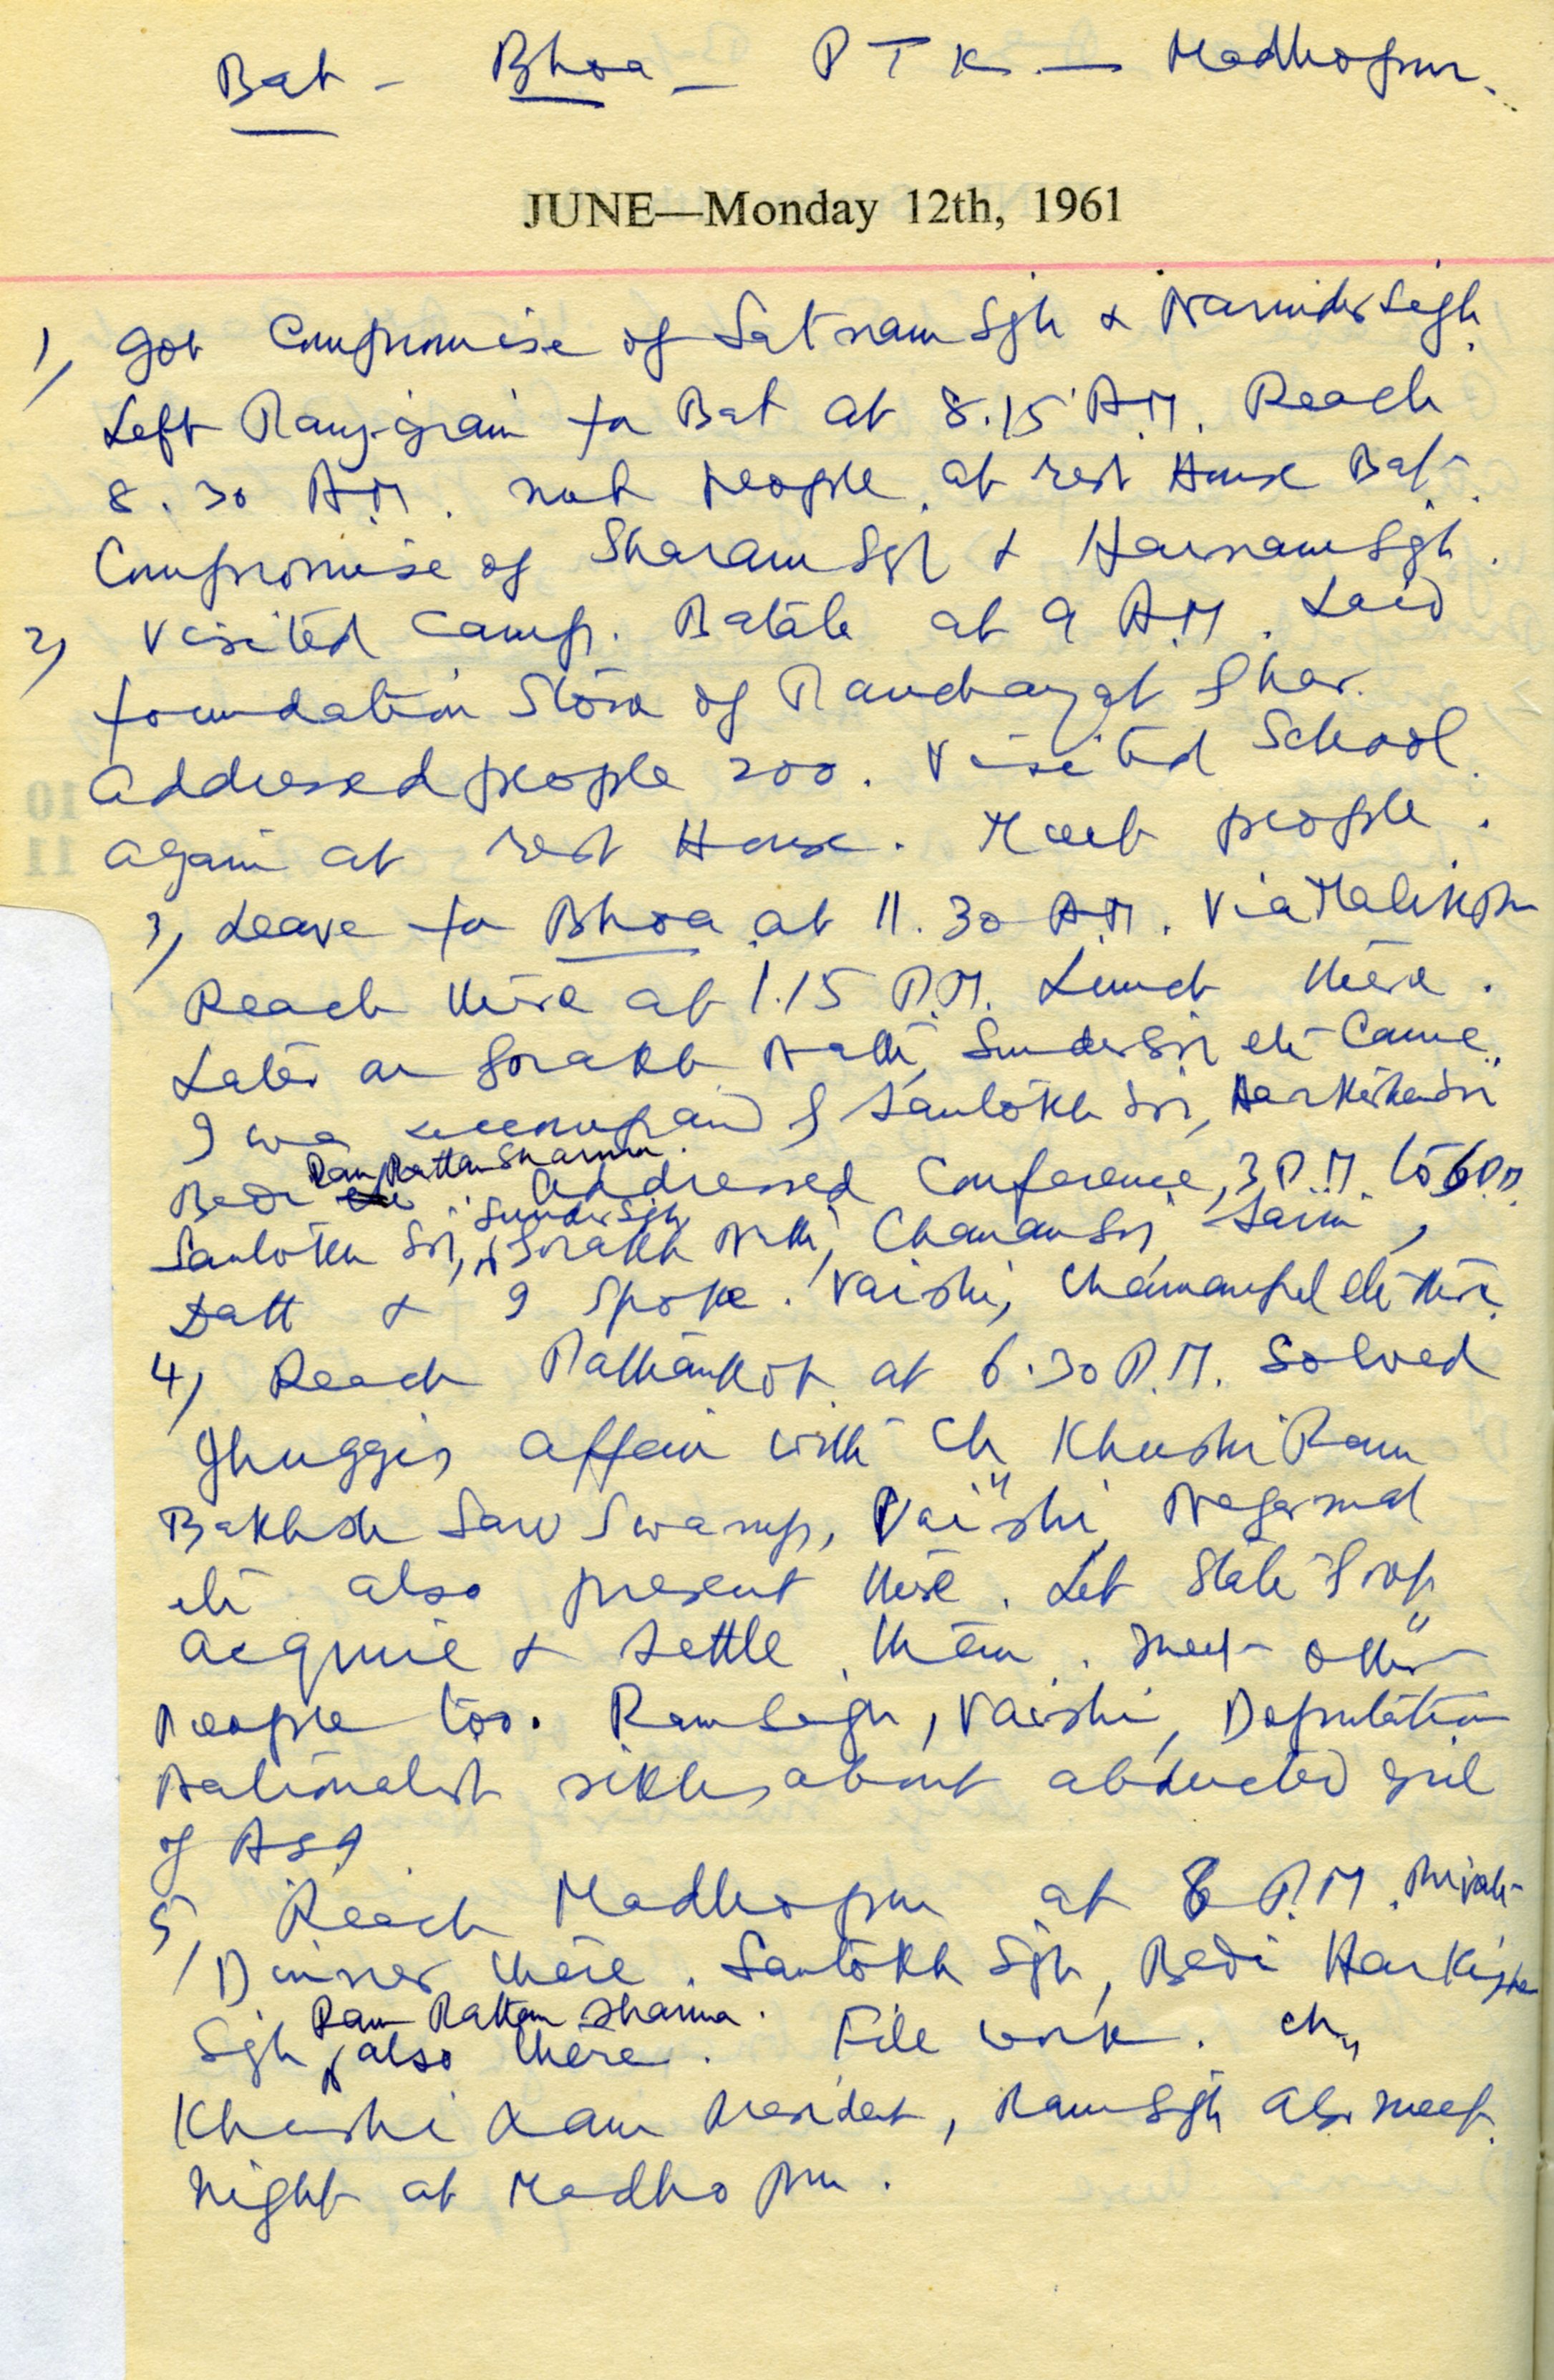 Bat - Bhoa - P T K. - Madhopur.
JUNE—Monday 12th, 1961
1) Got Compromise of Satnam Sgh & Narinder Singh.
Left for Bat at 8.15 A.M. Reach
8.30 A.M. met people at rest House Bat.
Compromise of Sharam Sgh & Harnam Sgh.
2) Visited Camp. Batala at 9 A.M. Laid
foundation Stone of Panchayat Ghar.
Addressed people 200. Visited School.
Again at rest House. Meet people.
3) Leave for Bhoa at 11.30 A.M. Via Malikpur
Reach there at 1.15 P.M. Lunch there.
Later on Gorakh Nath, Sunder Sgh etc Came.
I was accompanied by Santokh Sgh, Harkishan Sgh
Bedi Ram Rattan Sharma. Addressed Conference, 3 P.M. to 6 P.M.
Santokh Sgh, Sunder Sgh, Gorakh Nath, Chanan Sgh, Saini,
Datt & I spoke. Vaishi, Chamanlal etc there.
4) Reach Pathankot at 6.30 P.M. Solved
Jhuggis affair with Ch Khushi Ram
Bakhshi Sarv Swarup, Vaishi, Nagarmal
etc also present there. Let State Govt
acquire & settle them. meet other
people too. Ram Singh, Vaishi, Deputation
Nationalist sikhs about abducted girl
of
5) Reach Madhopur at 8 P.M. Private
Dinner there. Santokh Sgh, Bedi Harkishan
Sgh Ram Rattan Sharma. also there. File work. Ch.
Khushi Ram President, Ram Sgh also meet.
Night at Madhopur.